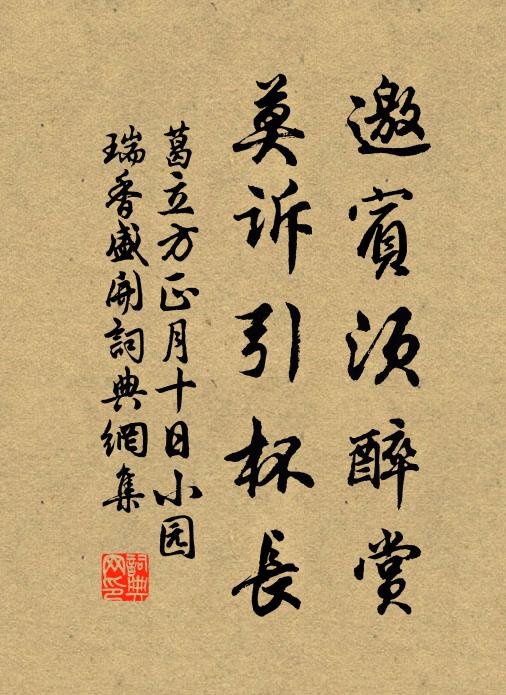 邀賓須醉賞
莫訴引杯長
葛立方正月十日小园
瑞香盛開詞典網集
詞典
网印